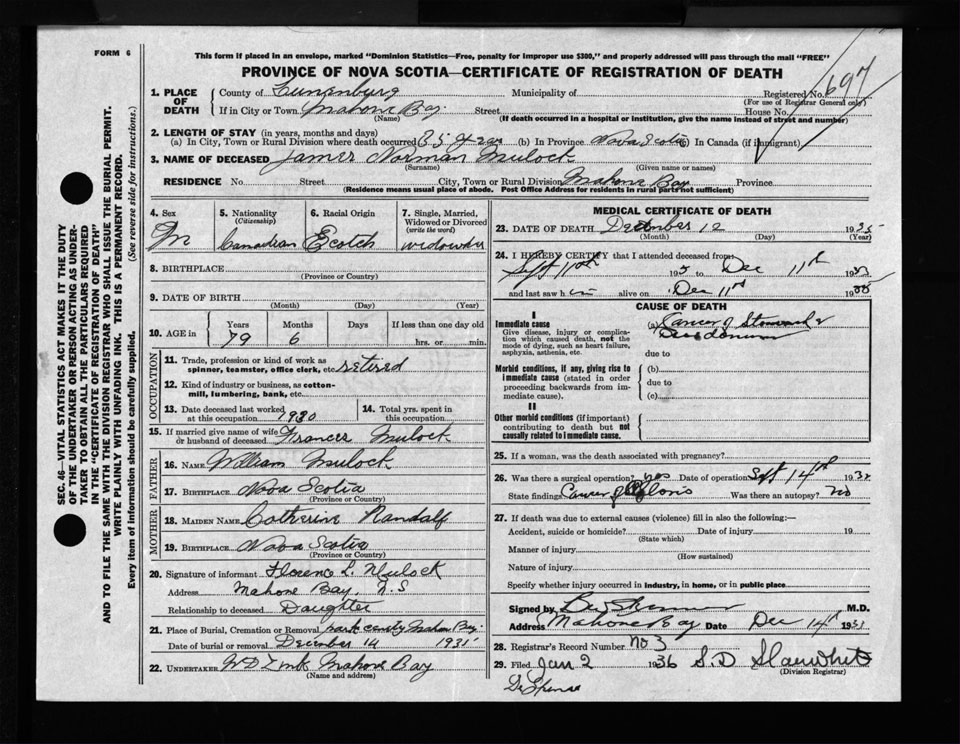 FORM 6
This form if placed in an envelope, marked "Dominion Statistics—Free, penalty for improper use $300," and properly addressed will pass through the mail "FREE"
PROVINCE OF NOVA SCOTIA—CERTIFICATE OF REGISTRATION OF DEATH
697
1. PLACE OF DEATH
County of Lunenburg Municipality of Registered No.
(For use of Registrar General only)
If in City or Town Mahone Bay. Street House No.
(Name) (If death occurred in a hospital or institution, give the name instead of street and number)
2. LENGTH OF STAY (in years, months and days)
(a) In City, Town or Rural Division where death occurred (b) In Province Nova Scotia In Canada (if immigrant)
3. NAME OF DECEASED James Norman Mulock
(Surname) (Given name or names)
RESIDENCE No. Street City, Town or Rural Division Mahone Bay Province
(Residence means usual place of abode. Post Office Address for residents in rural parts not sufficient)
4. Sex M
5. Nationality (Citizenship) Canadian
6. Racial Origin Scotch
7. Single, Married, Widowed or Divorced (write the word)
8. BIRTHPLACE
(Province or Country)
9. DATE OF BIRTH
(Month) (Day) (Year)
10. AGE in Years Months Days If less than one day old
79 6 hrs. or min.
OCCUPATION
11. Trade, profession or kind of work as spinner, teamster, office clerk, etc. retired
12. Kind of industry or business, as cotton-mill, lumbering, bank, etc.
13. Date deceased last worked at this occupation 1930
14. Total yrs. spent in this occupation
15. If married give name of wife or husband of deceased Frances Mulock
FATHER
16. NAME William Mulock
17. BIRTHPLACE Nova Scotia
(Province or Country)
MOTHER
18. MAIDEN NAME Catherine
19. BIRTHPLACE Nova Scotia
(Province or Country)
20. Signature of informant Florence L. Mulock
Address Mahone Bay, N.S
Relationship to deceased Daughter
21. Place of Burial, Cremation or Removal Mahone Bay.
Date of burial or removal December 14
22. UNDERTAKER Mahone Bay
(Name and address)
MEDICAL CERTIFICATE OF DEATH
23. DATE OF DEATH December 12
(Month) (Day) (Year)
24. I HEREBY CERTIFY that I attended deceased from:
Sept 11th to Dec 11th
and last saw h im alive on Dec 11th
CAUSE OF DEATH
I
Immediate cause
Give disease, injury or complication which caused death, not the mode of dying, such as heart failure, asphyxia, asthenia, etc.
(a) Cancer of Stomach &
Duodenum
due to
Morbid conditions, if any, giving rise to immediate cause (stated in order proceeding backwards from immediate cause).
(b)
due to
(c)
II
Other morbid conditions (if important) contributing to death but not causally related to immediate cause.
25. If a woman, was the death associated with pregnancy?
26. Was there a surgical operation? yes Date of operation Sept 14th
State findings Cancer of Was there an autopsy? no
27. If death was due to external causes (violence) fill in also the following:—
Accident, suicide or homicide? Date of injury 19
(State which)
Manner of injury
(How sustained)
Nature of injury
Specify whether injury occurred in industry, in home, or in public place
Signed by M.D.
Address Mahone Bay Date Dec 14th
28. Registrar's Record Number No 3
29. Filed Jan 2 1936 S.D Slauwhite
(Division Registrar)
SEC. 46—VITAL STATISTICS ACT MAKES IT THE DUTY
OF THE UNDERTAKER OR PERSON ACTING AS UNDER-
TAKER TO OBTAIN ALL THE PARTICULARS REQUIRED
IN THE "CERTIFICATE OF REGISTRATION OF DEATH"
AND TO FILE THE SAME WITH THE DIVISION REGISTRAR WHO SHALL ISSUE THE BURIAL PERMIT.
WRITE PLAINLY WITH UNFADING INK. THIS IS A PERMANENT RECORD.
Every item of information should be carefully supplied. (See reverse side for instructions.)